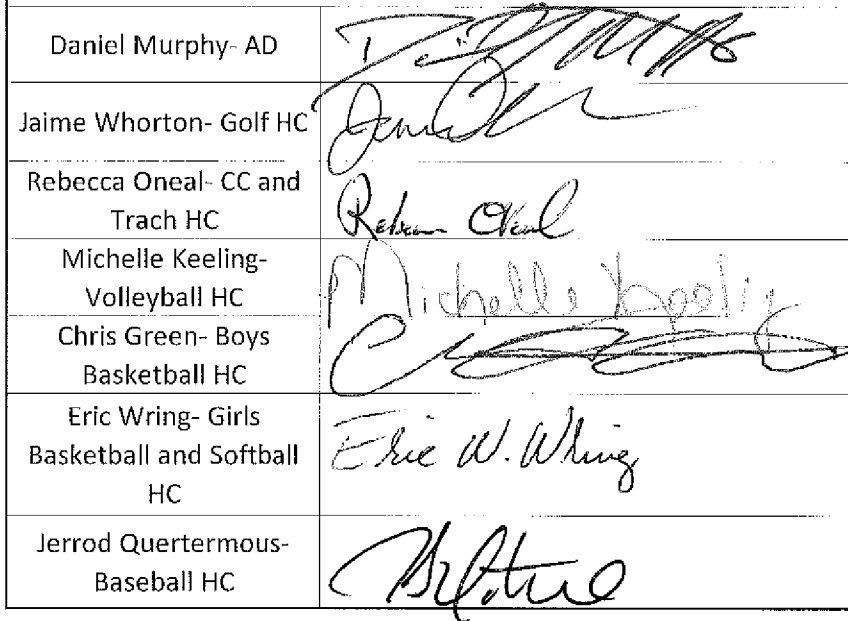 Daniel Murphy- AD
Jaime Whorton- Golf HC
Rebecca Oneal- CC and
Trach HC
Rebecca Oneal
Michelle Keeling-
Volleyball HC
Michelle Keeling
Chris Green- Boys
Basketball HC
Eric Wring- Girls
Basketball and Softball
HC
Eric W. Wring
Jerrod Quertermous-
Baseball HC